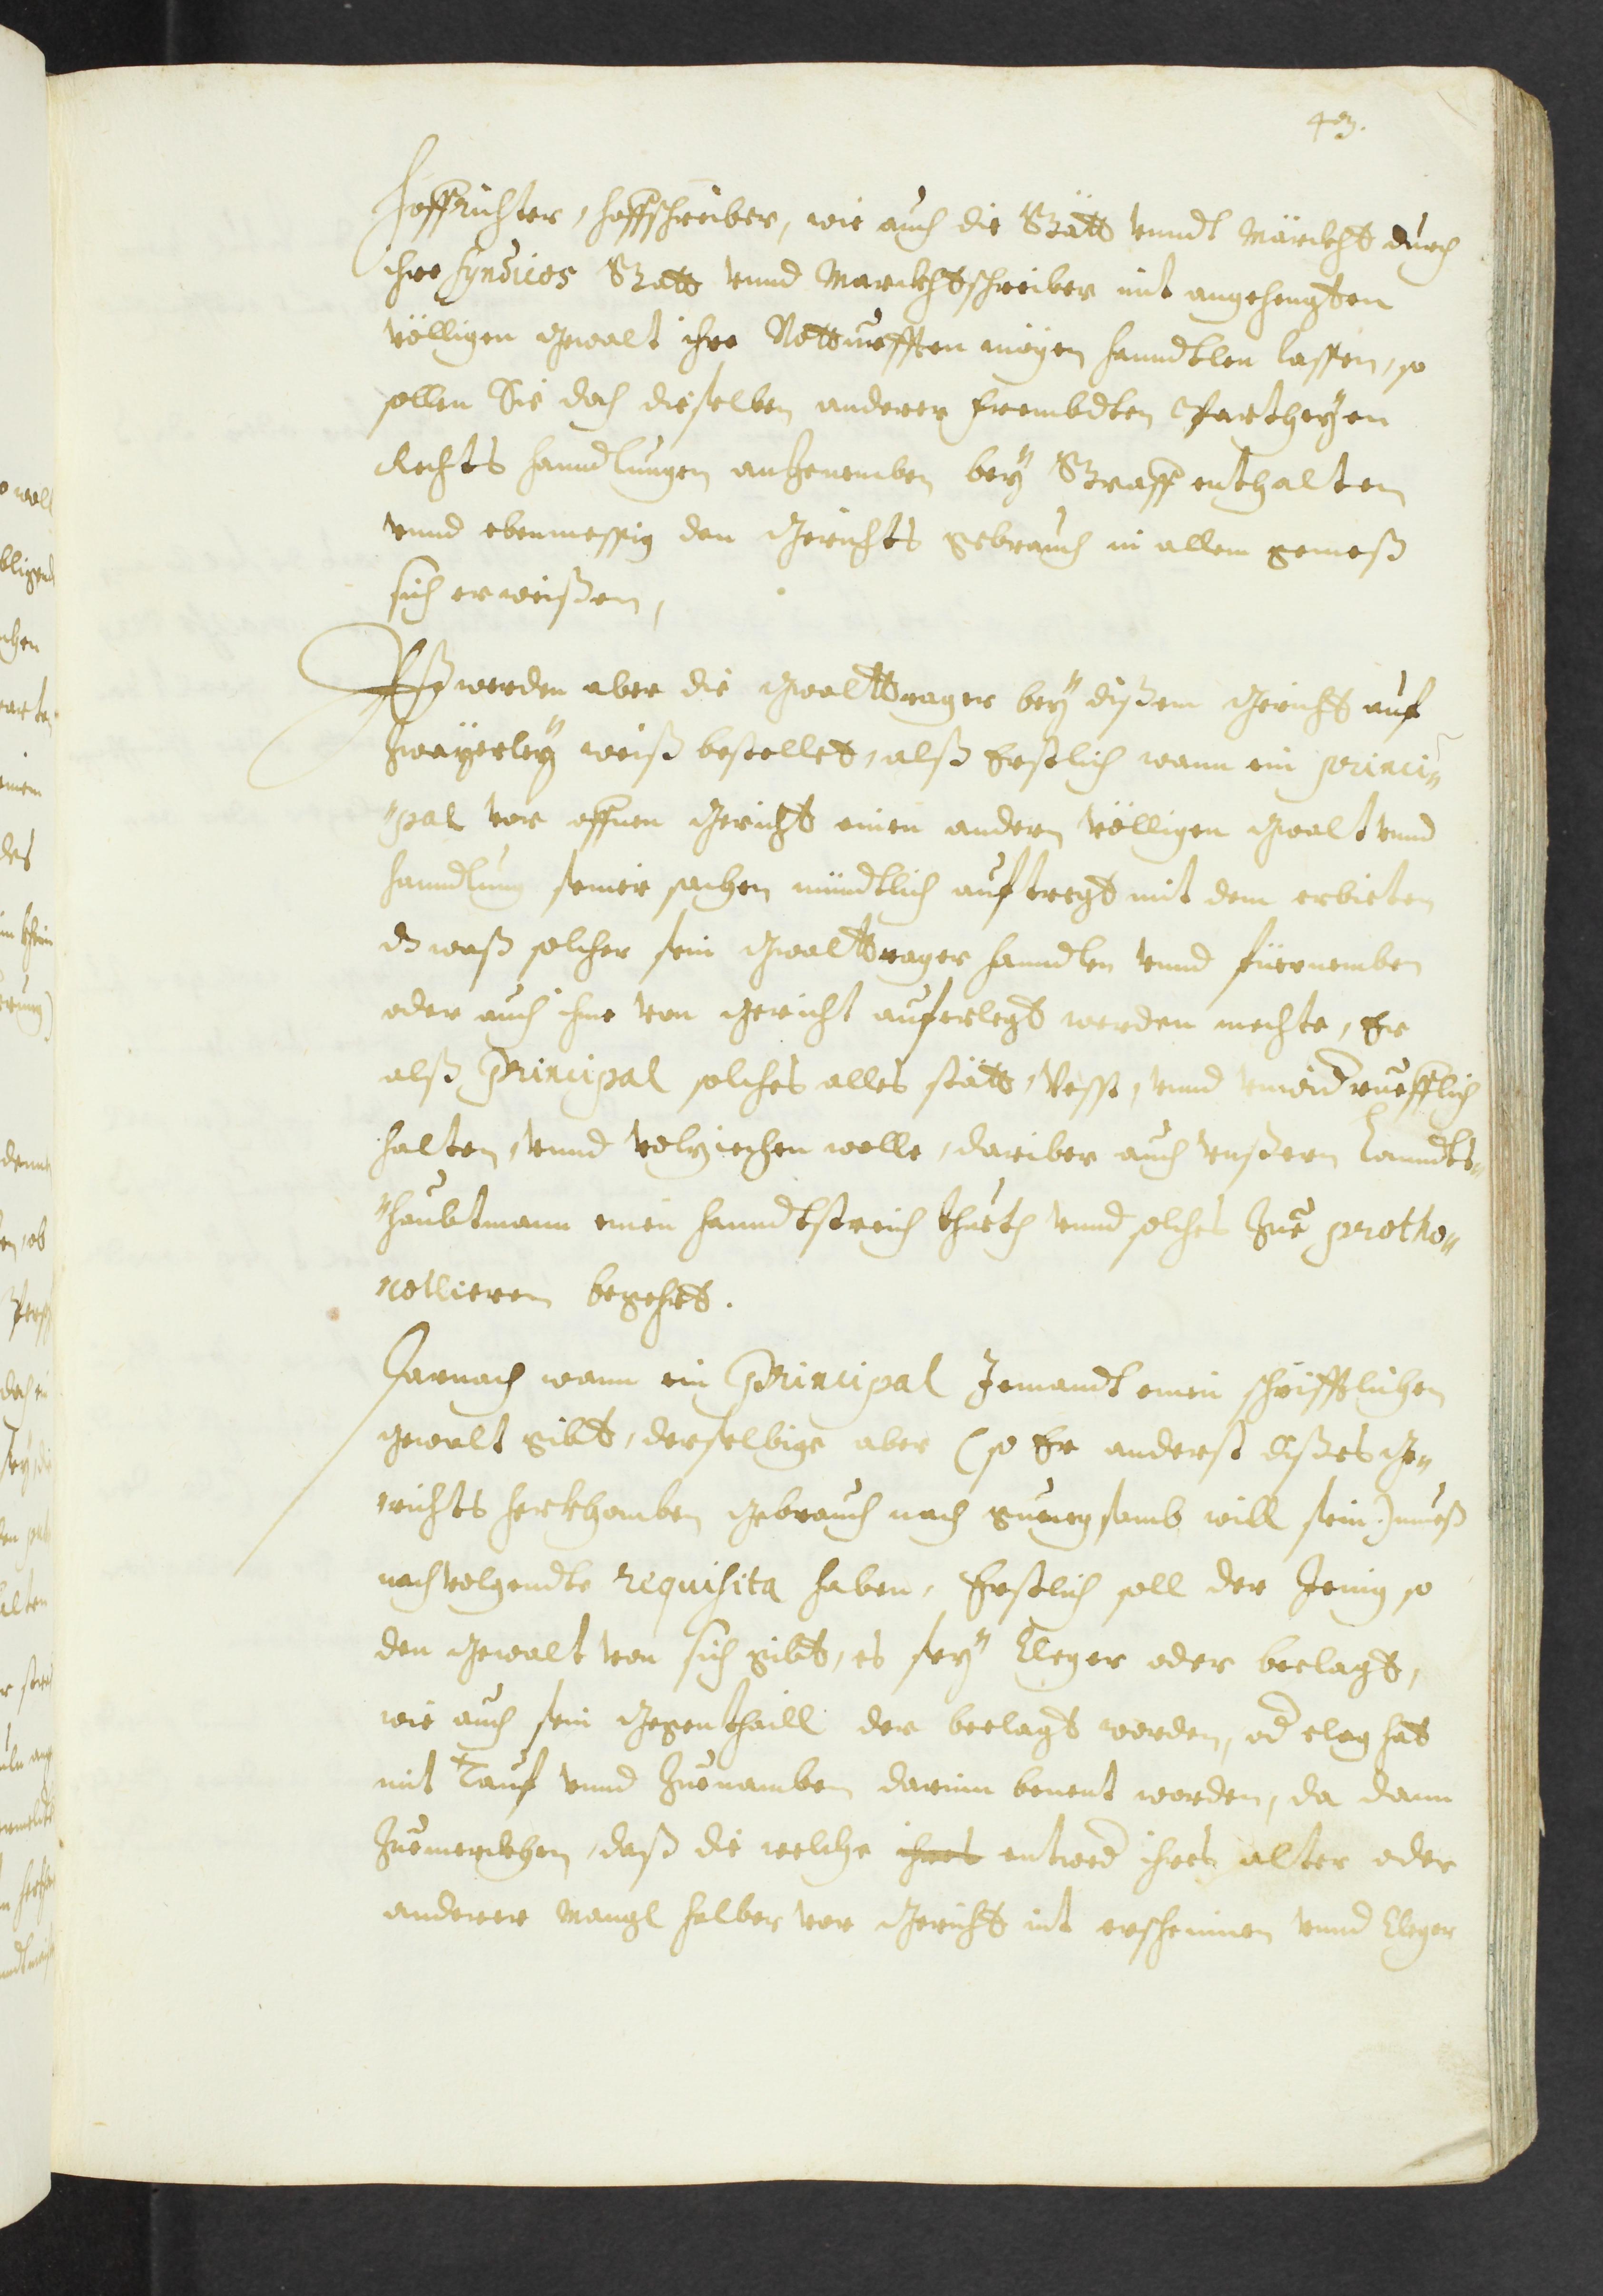 43.
Hoffrichter, hoffschreiber, wie auch die Stätt vnndt Märckht durch
ihre Syndicos Statt vnnd Marckhtschreiber mit angehengten
völligen gwalt ihre Notturfften mögen hanndtlen lassen, so
sollen Sie doch dieselben anderer frembdten Partheyen
Rechts hanndlungen anzenemben bey Straff enthalten
vnnd ebenmessig den Gerichts gebrauch in allem gemeß
sich erweißen,
Eß werden aber die gwalttrager bey dißem Gericht auf
zwayerley weiß bestellet, alß Erstlich wann ein princi„
„pal vor offnen Gericht einen andern völligen gwalt vnnd
hanndlung seiner sachen mündtlich auftregt mit dem erbieten
dz waß solcher sein gwalttrager hanndlen vnnd fürnemben
oder auch ihme von Gericht auferlegt werden mechte, Er
alß Principal solches alles stätt, Vesst, vnnd vnwid̄rueflich
halten, vnnd volziechen wolle, dariber auch vnßern Lanndts„
„haubtmann einen hanndtstreich thueth vnnd solches zue protho„
collieren begehrt.
Harnach wann ein Principal Jemandt einen schrifftlichen
gewalt gibt, derselbige aber (so Er anderst dißes Ge„
„richts herkhomben gebrauch nach gnuegsamb will sein) mueß
nachvolgendte requisita haben, Erstlich soll der Jenig so
den gewalt von sich gibt, es sey Cleger oder beclagt,
wie auch sein Gegenthaill der beclagt worden, od̄ clag hat
mit Tauf vnnd Zuenamben darinn benent worden, da dann
Zuemerckhen, daß die welche ihres entwed̄ ihres alter oder
anderer Mangl halber vor Gericht nit erscheinen vnnd Cleger